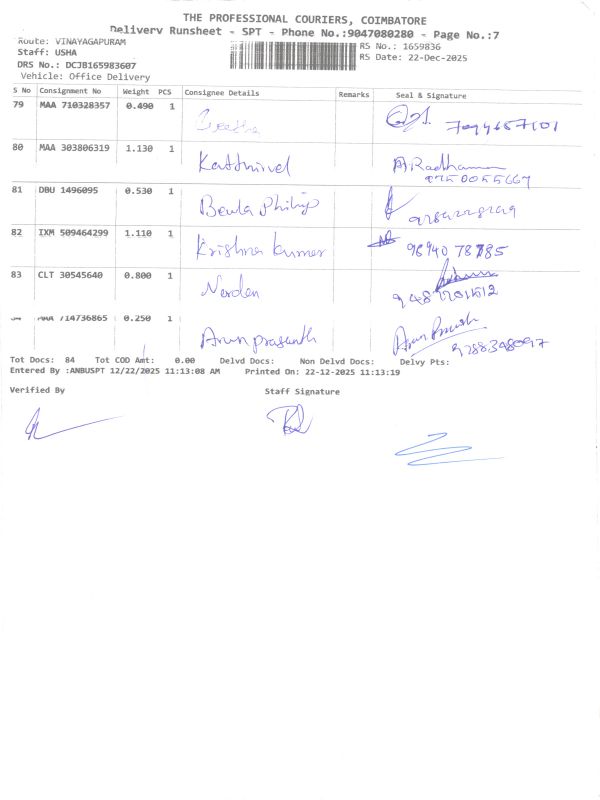 THE PROFESSIONAL COURIERS, COIMBATORE
Delivery Runsheet - SPT - Phone No.:9047080280 - Page No.:7
Route: VINAYAGAPURAM
Staff: USHA
DRS No.: DCJB165983607
Vehicle: Office Delivery
RS No.: 1659836
RS Date: 22-Dec-2025
S No Consignment No Weight PCS Consignee Details Remarks Seal & Signature
79 MAA 710328357 0.490 1
80 MAA 303806319 1.130 1 Kathirvel A Radhamma
81 DBU 1496095 0.530 1 Beula Philip
82 IXM 509464299 1.110 1 Krishna kumar 98940 78785
83 CLT 30545640 0.800 1
714736865 0.250 1 Arun prasanth
Tot Docs: 84 Tot COD Amt: 0.00 Delvd Docs: Non Delvd Docs: Delvy Pts:
Entered By :ANBUSPT 12/22/2025 11:13:08 AM Printed On: 22-12-2025 11:13:19
Verified By Staff Signature